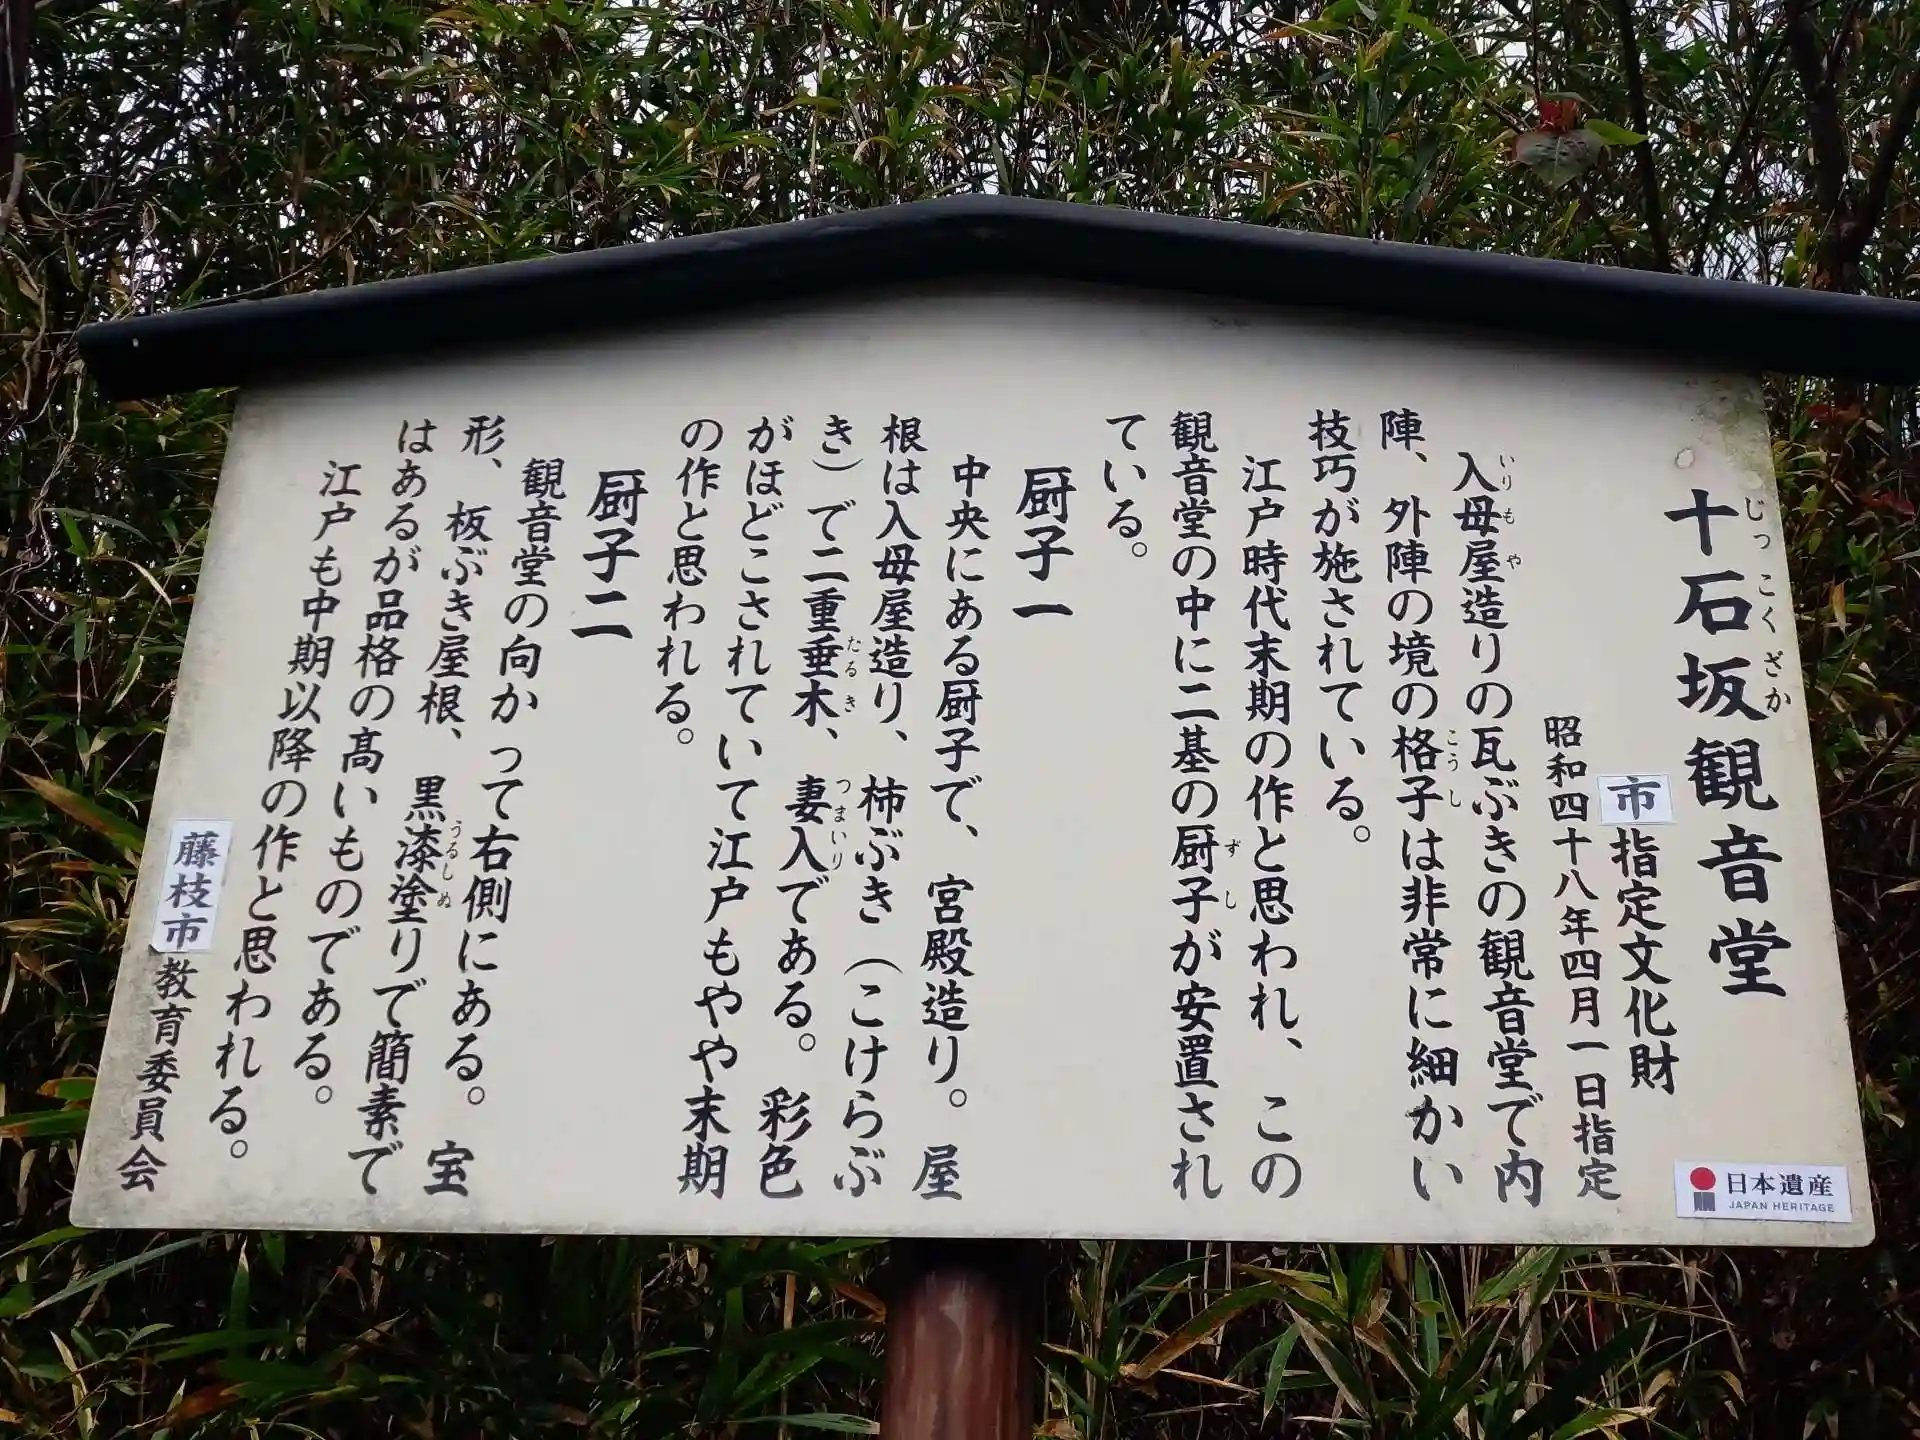 十石坂観音堂
じっこくざか
市指定文化財
昭和四十八年四月一日指定
入母屋造りの瓦ぶきの観音堂で内
いりもや
陣、外陣の境の格子は非常に細かい
こうし
技巧が施されている。
江戸時代末期の作と思われ、この
観音堂の中に二基の厨子が安置され
ずし
ている。
厨子一
中央にある厨子で、宮殿造り。屋
根は入母屋造り、柿ぶき（こけらぶ
き）で二重垂木、妻入である。彩色
たるき つまいり
がほどこされていて江戸もやや末期
の作と思われる。
厨子二
観音堂の向かって右側にある。宝
形、板ぶき屋根、黒漆塗りで簡素で
うるしぬ
はあるが品格の高いものである。
江戸も中期以降の作と思われる。
藤枝市教育委員会
日本遺産
JAPAN HERITAGE